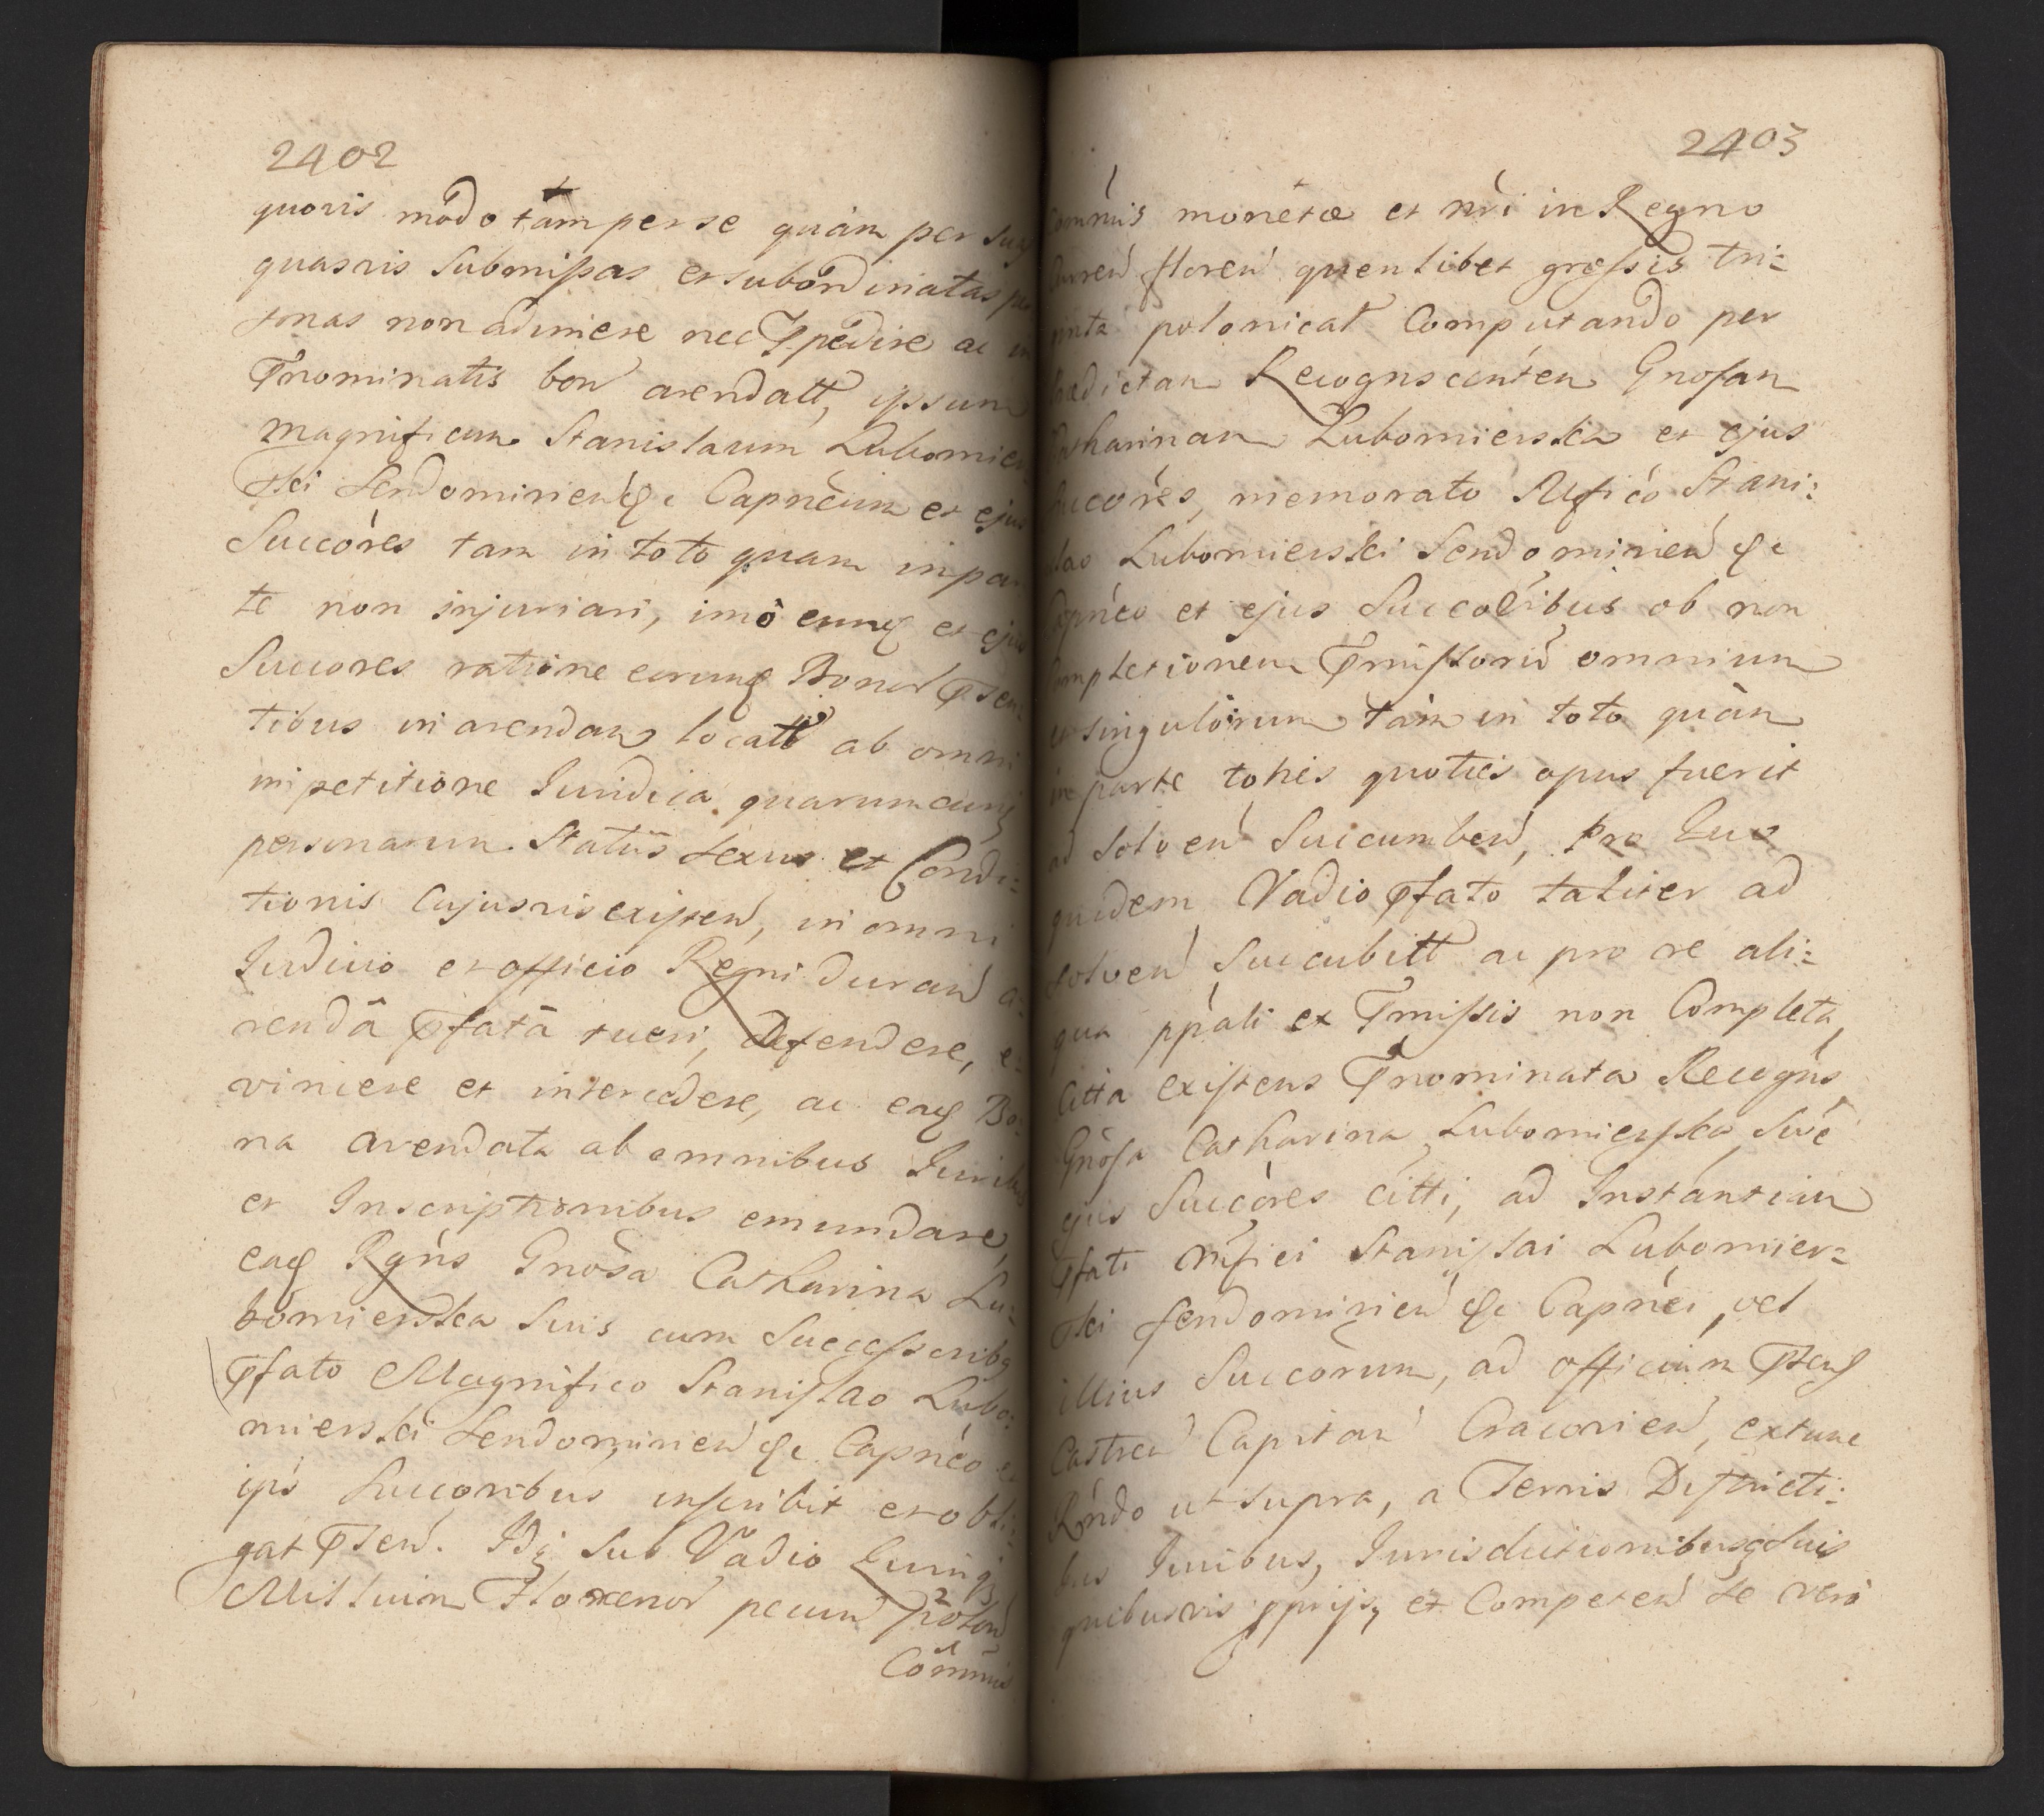 2402
quovis modo tam per se quàm per suas
quasvis submißas et subordinatas per
sonas non adimere nec Jpedire ac in
Pnominatis bon arendatt, ipsum
magnificum Stanislaum Lubomier
ski Sendomirien &c Capnéum et ejus
Succóres tam in toto quam in par
te non injuriari, imò eunq et ejus
Succores ratione earunq Bonor Psen
tibus in arendam locatt ab omni
impetitione Juridica quarumcunq
personarum Statûs sexus et Condi:
tionis cujusvis existen, in omni
Judicio et officio Regni duran a:
rendâ pfatâ tueri, defendere, e:
vincere et intercedere, ac eaq Bo:
na arendata ab omnibus Juribus
et Inscriptionibus emundare,
eaq Rgńs Gnósa Catharina Lu:
bomierska suis cum Successoribq
Pfato Magnifico Stanislao Lubo:
mierski Sendomirien &c. Capnéo et
ips Succoribus inscribit et obli:
gat Psen. Idq sub Vadio Quinq
Millium Florenor pecun Polon
Cómmis
2403
Commis monetæ et nri in Regno
Curren floren quenlibet großis tri:
ginta polonical Computando per
Prædictam Recognscentem Gnosam
Catharinam Lubomierska et ejus
Succóres, memorato Mfico Stani:
slao Lubomierski Sendomirien &c
Capnéo et ejus Succoribus ob non
completionem Pmissorum omnium
et singulórum tàm in toto quàm
in parte toties quoties opus fuerit
ad solven Succumben, Pro quo
quidem Vadio pfato taliter ad
solven Succubitt ac pro re ali:
qua ppali ex Pmißis non Completa,
Citta existens Pnominata Recogńs
Gnósa Catharina Lubomierska, sivé
ejus Succóres citti, ad Instántiam
Pfati Mfici Stanislai Lubomier:
ski Sendomirien &c Capnéi, vel
illius Succórum, ad officium Psens
Castren Capitan Cracovien, extunc
Rńdo ut supra, a Terris Districti:
bus Juribus, Jurisdictionibusq suis
quibusvis pprijs, et Competen se verò